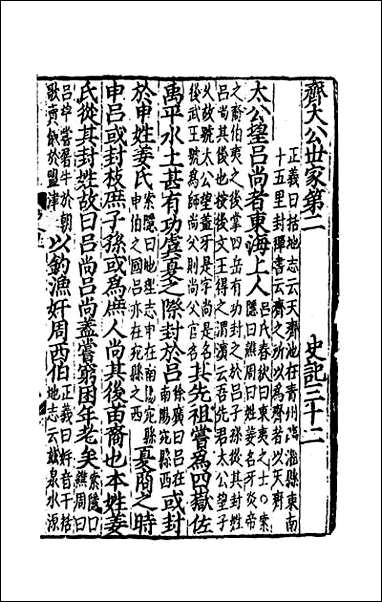 齊大公世家第二　史記三十二
正義曰括地志云天齊池在青州臨淄縣東南
十五里封禪書云齊之所以爲齊者以天齊
太公望呂尚者東海上人
呂氏春秋曰東夷之士○索
隱曰譙周曰姓姜名牙炎帝
之裔伯夷之後掌四岳有功封之於呂子孫從其封姓
呂尚其後也按後文王得之渭濱云吾先君太公望子
久故號太公望蓋牙是字尚是名
後武王號爲師尚父則尚父官名
其先祖嘗爲四嶽佐
禹平水土甚有功虞夏之際封於呂
徐廣曰呂在
南陽宛縣西
或封
於申姓姜氏
索隱曰地理志申在南陽宛縣
申伯之國呂亦在宛縣之西
夏商之時
申呂或封枝庶子孫或爲庶人尚其後苗裔也本姓姜
氏從其封姓故曰呂尚呂尚蓋嘗窮困年老矣
索隱曰
譙周曰
呂望嘗屠牛於朝
歌賣飯於盟津
以釣漁奸周西伯
正義曰奸音干括
地志云茲泉水源